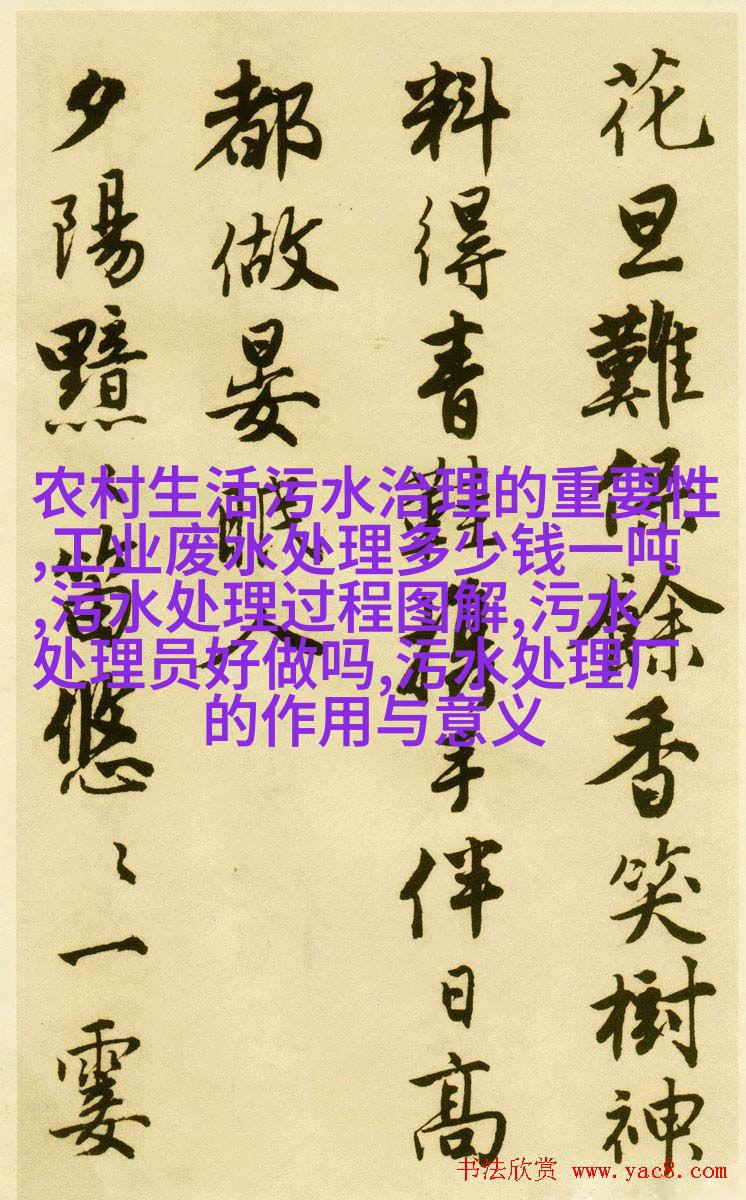 花旦難保餘香笑樹神
料得青鞋攜手伴日高
都做晏眠人
夕陽黯〻笛悠〻一霎
农村生活污水治理的重要性
,工业废水处理多少钱一吨
,污水处理过程图解,污水
处理员好做吗,污水处理厂
的作用与意义
书法欣赏 www.yac8.com